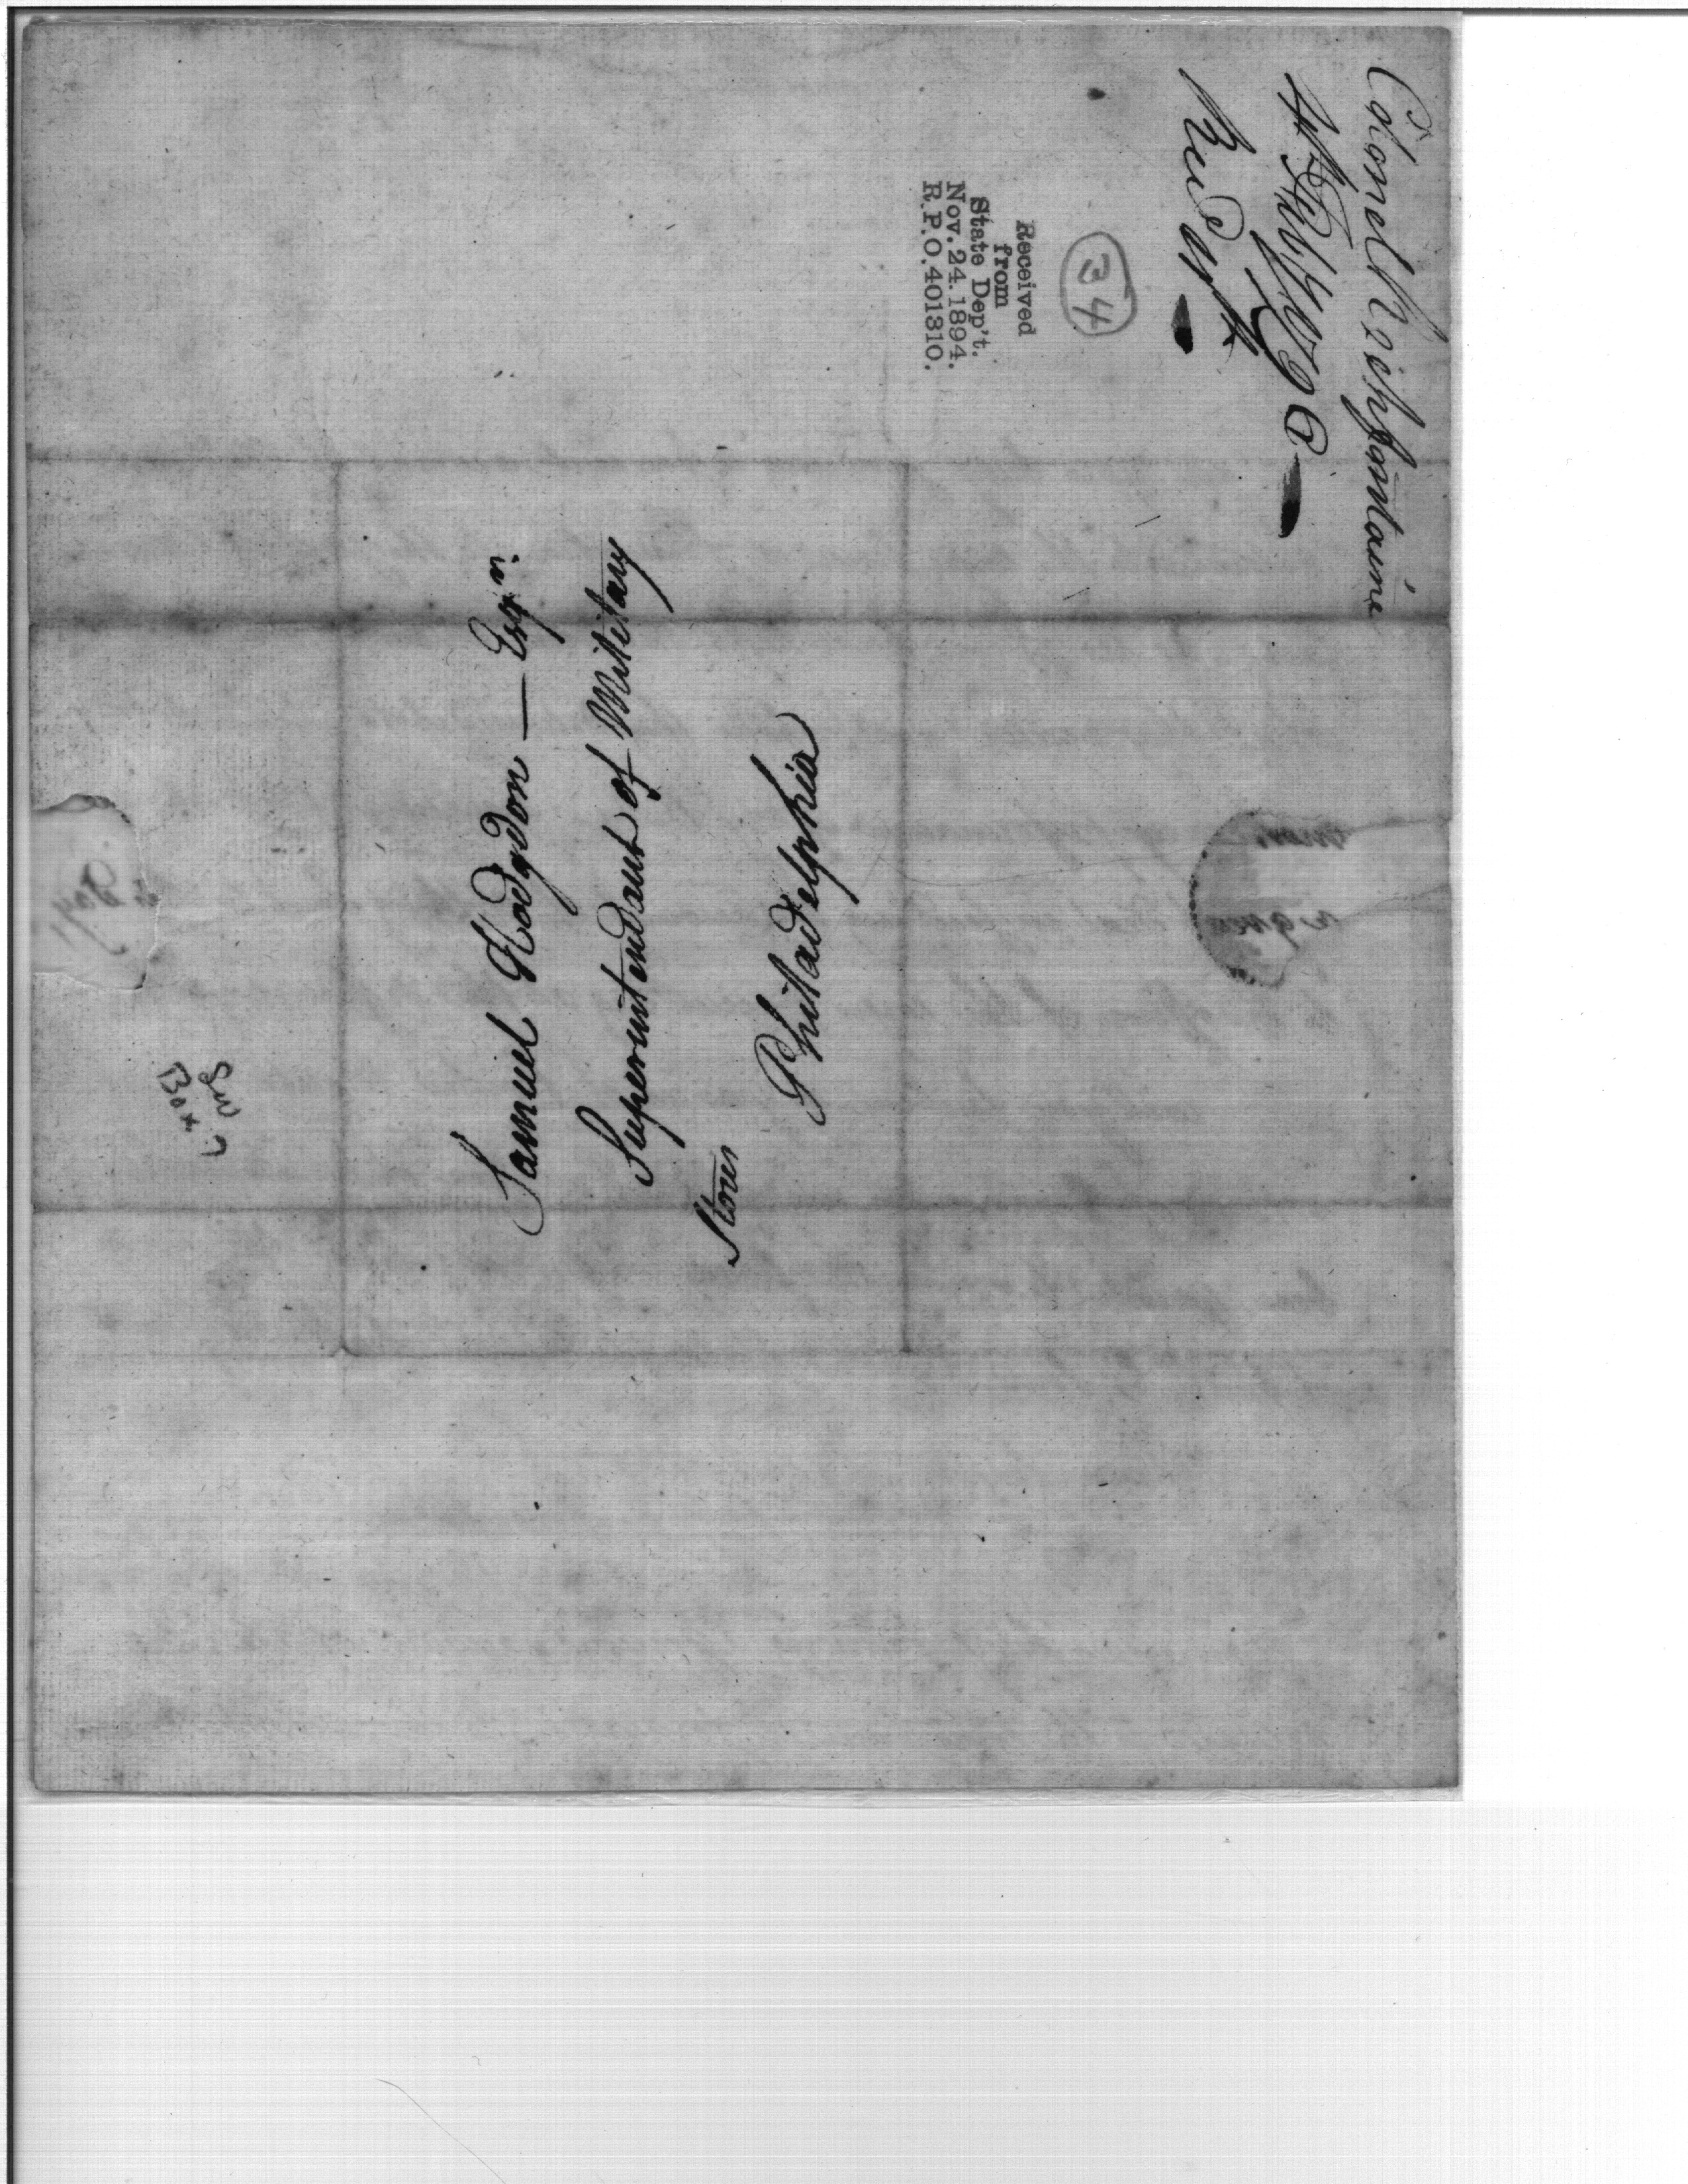 Colonel Rochfontaine
4th July 1796
Recd
34
Received
from
State Dep't.
Nov. 24. 1894.
R.P.O. 401310.
Samuel Hodgdon — Esqr.
Superintendant of Military
Stores
Philladelphia
Box